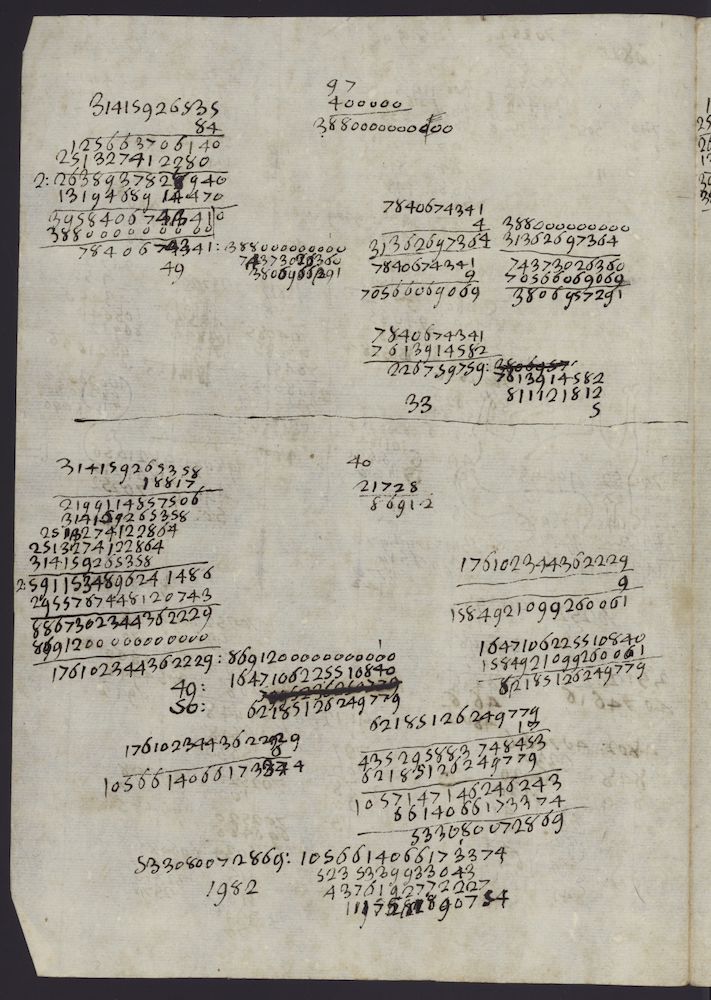 31415926535
84
125663706140
251327412280
3958406743410
388000000000
7840674341: 388000000000
49
97
400000
7840674341
4
31362697364
7840674341
9
70566069069
388000000000
31362697364
74373026360
70566069069
3806957291
7840674341
7613914582
226759759:
7613914582
811121812
5
33
314159265358
18817
2199114857506
314159265358
2513274122864
2513274122864
314159265358
2:5911534896241486
2955767448120743
8867302344362229
8691200000000000
176102344362229: 869120000000000000
49: 1647106225510840
50:
62185126249779
40
21728
86912
176102344362229
9
1584921099260061
1647106225510840
1584921099260061
62185126249779
176102344362229
62185126249779
17
435295883748453
62185126249779
1057147146246243
66140661733 74
533080072869
533080072869: 1056614066173374
523533993 3043
1982